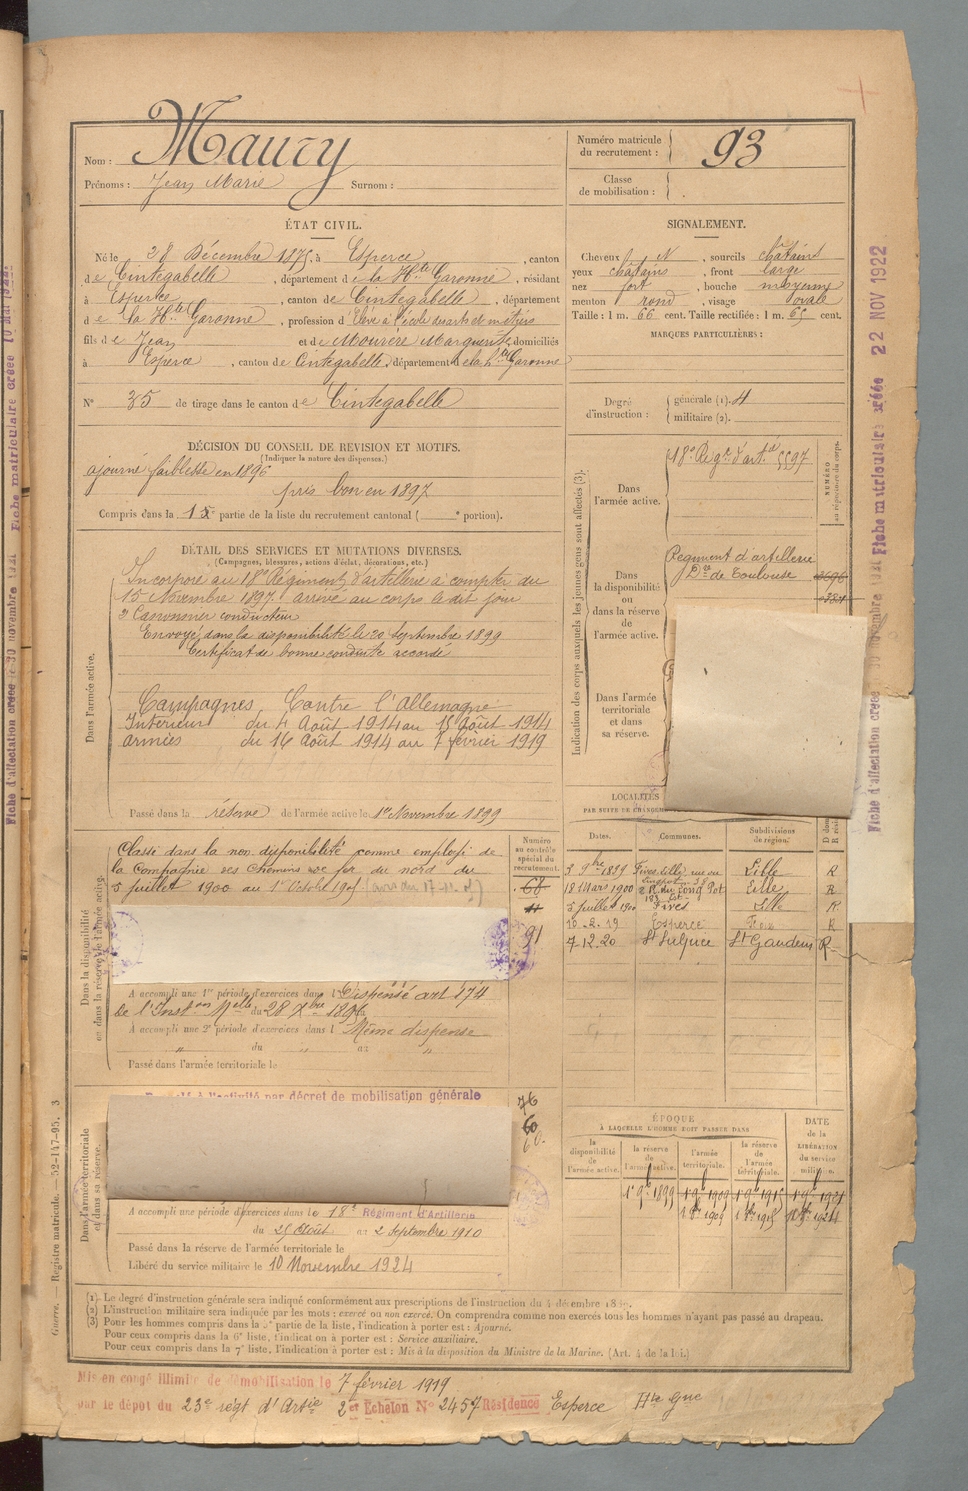 Nom : Maury
Prénoms : Jean Marie Surnom :
Numéro matricule du recrutement : 93
Classe de mobilisation :
ÉTAT CIVIL.
Né le 28 Décembre 1875, à Esperce, canton
de Cintegabelle, département de la Hte Garonne, résidant
à Esperce, canton de Cintegabelle, département
de la Hte Garonne, profession d'Elève à l'école des arts et métiers
fils de Jean et de Mourère Marguerite, domiciliés
à Esperce, canton de Cintegabelle, département de la Hte Garonne
N° 35 de tirage dans le canton de Cintegabelle
SIGNALEMENT.
Cheveux N, sourcils châtains
yeux châtains, front large
nez fort, bouche moyenne
menton rond, visage ovale
Taille : 1 m. 66 cent. Taille rectifiée : 1 m. 65 cent.
MARQUES PARTICULIÈRES :
Degré d'instruction : générale (1). 4
militaire (2).
DÉCISION DU CONSEIL DE REVISION ET MOTIFS.
(Indiquer la nature des dispenses.)
ajourné faiblesse en 1896
pris bon en 1897
Compris dans la 1re partie de la liste du recrutement cantonal ( e portion).
DÉTAIL DES SERVICES ET MUTATIONS DIVERSES.
(Campagnes, blessures, actions d'éclat, décorations, etc.)
Dans l'armée active.
Incorporé au 18e Régiment d'artillerie à compter du
15 Novembre 1897 arrivé au corps le dit jour
2 Canonnier conducteur
Envoyé dans la disponibilité le 20 Septembre 1899
Certificat de bonne conduite accordé
Campagnes Contre l'allemagne
Intérieur du 4 Août 1914 au 15 Août 1914
armées du 16 Août 1914 au 7 février 1919
Passé dans la réserve de l'armée active le 1er Novembre 1899
Indication des corps auxquels les jeunes gens sont affectés (3).
Dans l'armée active.
18e Regt d'artie 5597
NUMÉRO au répertoire du corps.
Dans la disponibilité ou dans la réserve de l'armée active.
Regiment d'artillerie
Dre de Toulouse
Dans l'armée territoriale et dans sa réserve.
LOCALITÉS
Dates. Communes. Subdivisions de région.
Fives Lille Lille R
18 Mars 1900 Lille R
5 Juillet 1900 Fives Lille R
10 . 2 . 19 Esperce Foix R
7.12.20 St Sulpice St Gaudens R
Dans la disponibilité ou dans la réserve de l'armée active.
Numéro au contrôle spécial du recrutement.
Classé dans la non disponibilité comme employé de
la Compagnie des chemins de fer du nord du
5 juillet 1900 au 1er Octobre 1905
68
91
A accompli une 1re période d'exercices dans l Dispensé art 174
de l'Inston Melle du 28 Xbre 1895
A accompli une 2e période d'exercices dans l Même dispense
du au
Passé dans l'armée territoriale le
Dans l'armée territoriale et dans sa réserve.
Rappelé à l'activité par décret de mobilisation générale
76
60
A accompli une période d'exercices dans le 18e Régiment d'Artillerie
du 25 Août au 2 Septembre 1910
Passé dans la réserve de l'armée territoriale le
Libéré du service militaire le 10 Novembre 1924
ÉPOQUE
À LAQUELLE L'HOMME DOIT PASSER DANS
la disponibilité de l'armée active. la réserve de l'armée active. l'armée territoriale. la réserve de l'armée territoriale.
DATE de la LIBÉRATION du service militaire.
1er 9bre 1899 1er 9bre 1909 1er 9bre 1915
(1) Le degré d'instruction générale sera indiqué conformément aux prescriptions de l'instruction du 4 décembre
(2) L'instruction militaire sera indiquée par les mots : exercé ou non exercé. On comprendra comme non exercés tous les hommes n'ayant pas passé au drapeau.
(3) Pour les hommes compris dans la 5e partie de la liste, l'indication à porter est : Ajourné.
Pour ceux compris dans la 6e liste, l'indication à porter est : Service auxiliaire.
Pour ceux compris dans la 7e liste, l'indication à porter est : Mis à la disposition du Ministre de la Marine. (Art. 4 de la loi.)
Mis en congé illimité de démobilisation le 7 février 1919
par le dépôt du 23e régt d'Artie 2e Echelon N° 2457 Résidence Esperce Hte Gne
Guerre. — Registre matricule. — 52-147-95. 3
Fiche d'affectation créée 30 novembre 1921 Fiche matriculaire créée 22 NOV 1922
Fiche d'affectation créée 30 novembre 1921 Fiche matriculaire créée 10 Mai 1922